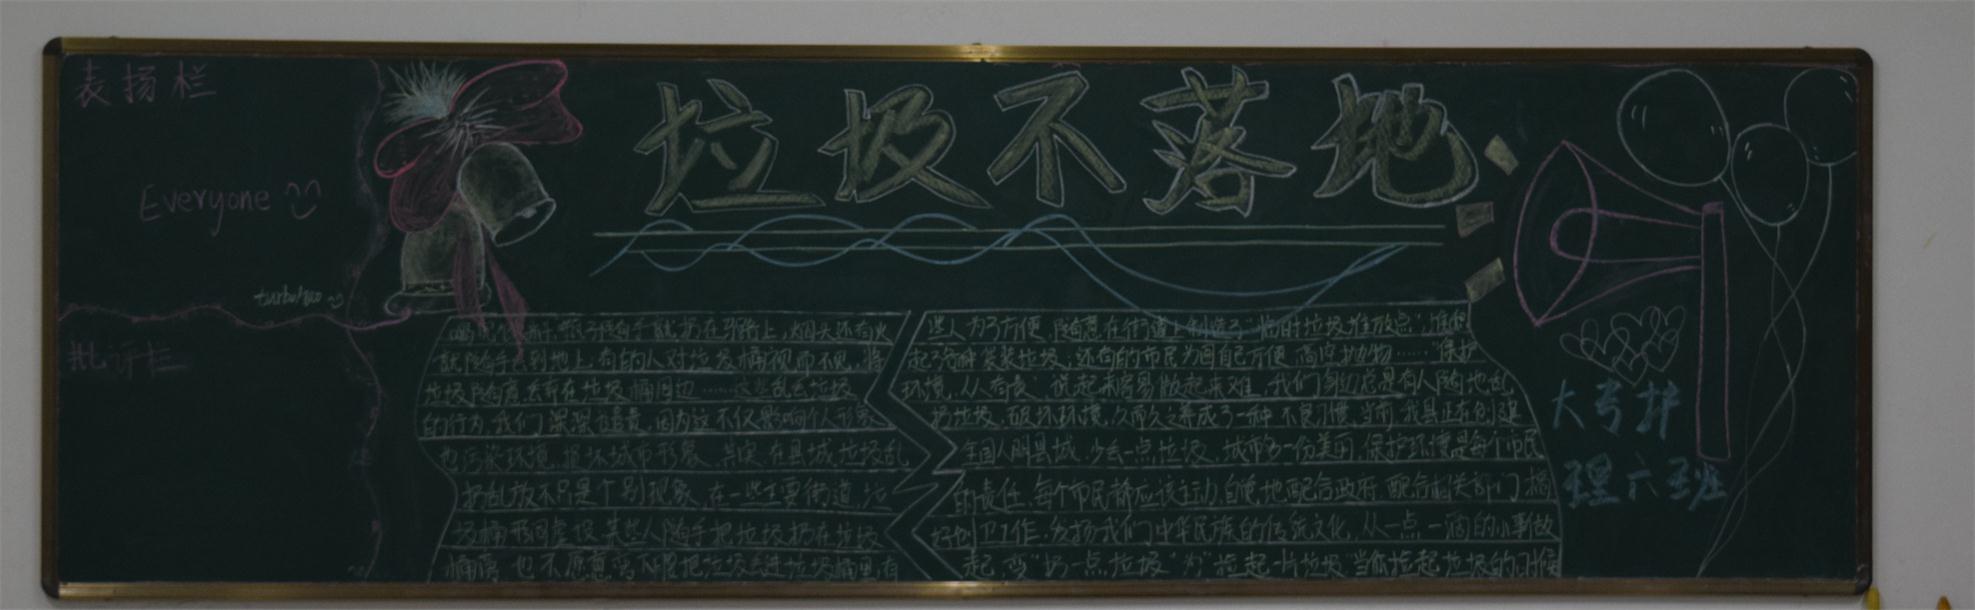 表扬栏
Everyone
批评栏
垃圾不落地
就随手丢到地上,有的人对垃圾桶视而不见,将
垃圾随意丢弃在垃圾桶周边……这些乱丢垃圾
的行为,我们深深谴责,因为这不仅影响个人形象
也污染环境,损坏城市形象,其实在县城,垃圾乱
扔乱放不只是个别现象,在一些主要街道,垃
圾桶形同虚设,某些人随手把垃圾扔在垃圾
桶旁 也不愿意 把垃圾丢进垃圾桶里,有
些人为了方便,随意在街道上制造了"临时垃圾堆放点",堆积
起了各种袋装垃圾;还有的市民为图自己方便,高空抛物……"保护
环境,从 "说起来容易做起来难,我们身边总是有人随地乱
扔垃圾,破坏环境,久而久之养成了一种不良习惯,当前,我县正在创建
全国文明县城,少丢一点垃圾,城市多一份美丽,保护环境是每个市民
的责任,每个市民都应该主动,自觉地配合政府,配合相关部门搞
好创卫工作,发扬我们中华民族的传统文化,从一点一滴的小事做
起,变"扔一点垃圾"为"捡起一片垃圾"当你捡起垃圾的时候
大专护
理六班